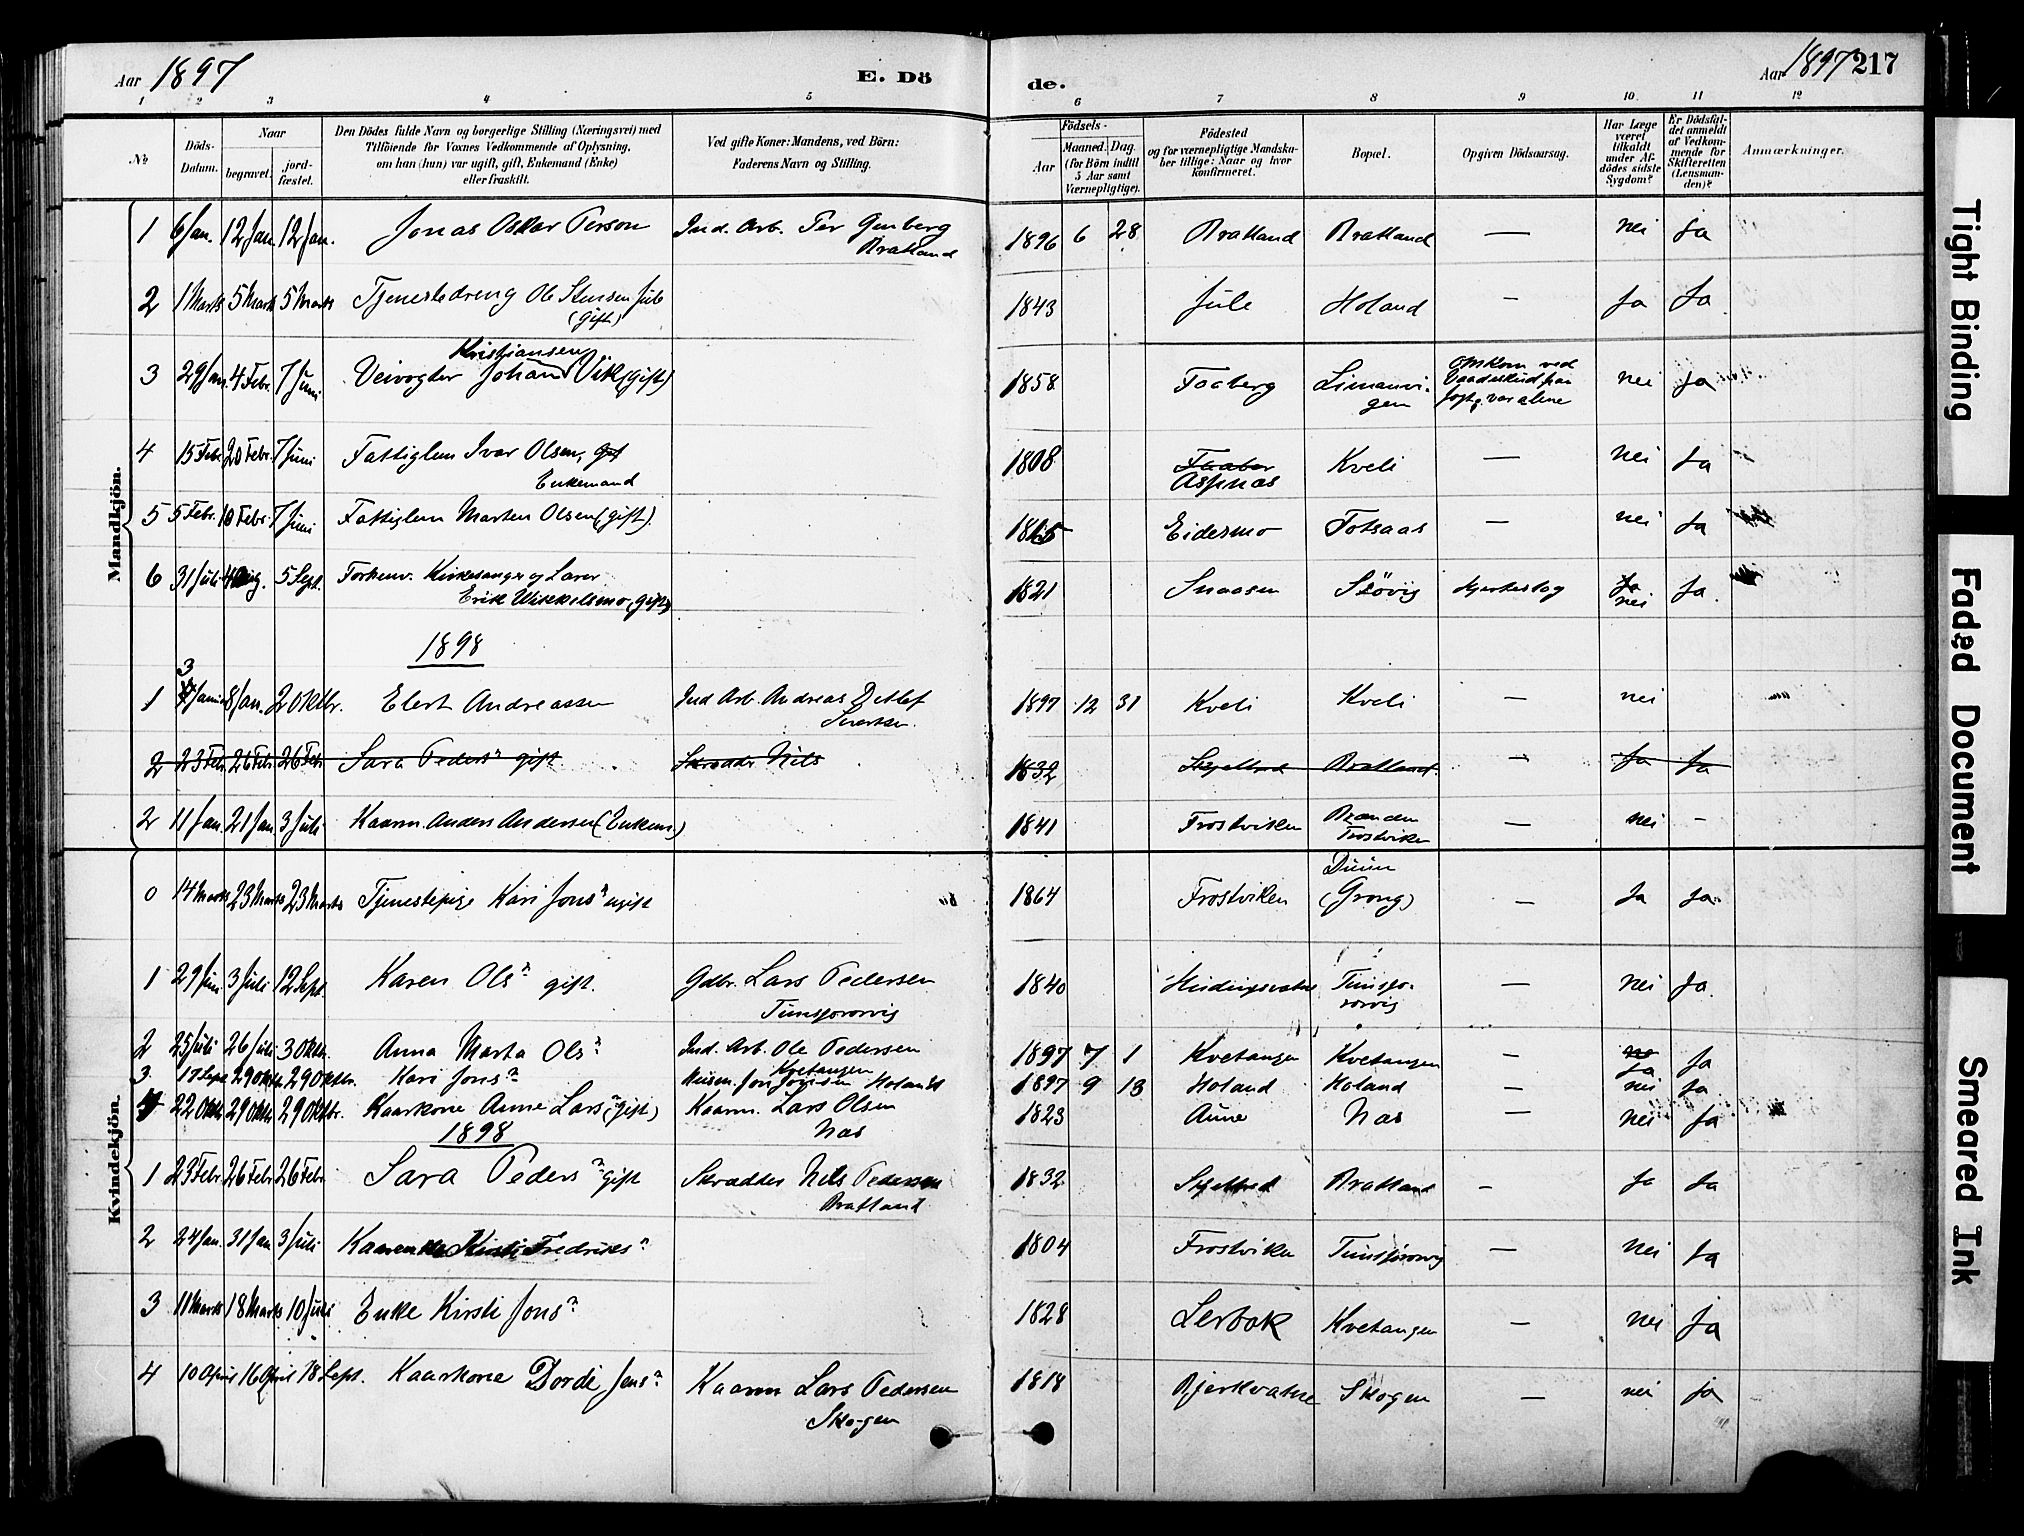 Aar 1897 E. Dö de. Aar 1897 217
1 2 3 4 5 6 7 8 9 10 11 12
No
Döds-Datum.
Naar
begravet.
jord-fæstet.
Den Dödes fulde Navn og borgerlige Stilling (Næringsvei) med
Tilföiende for Voxnes Vedkommende af Oplysning,
om han (hun) var ugift, gift, Enkemand (Enke)
eller fraskilt.
Ved gifte Koner: Mandens, ved Börn:
Faderens Navn og Stilling.
Födsels-
Aar
Maaned. Dag.
(for Börn indtil
5 Aar samt
Værnepligtige).
Födested
og for værnepligtige Mandska-
ber tillige: Naar og hvor
konfirmeret.
Bopæl.
Opgiven Dödsaarsag.
Har Læge
været
tilkaldt
under Af-
dödes sidste
Sygdom?
Er Dödsfal-
det anmeldt
af Vedkom-
mende for
Skifteretten
(Lensman-
den)?
Anmærkninger.
Mandkjön.
1 6 Jan. 12 Jan. 12 Jan. Jonas Oskar Person Ind. Arb. Per Genberg 1896 6 28 Bratland Bratland — nei Ja
Bratland
2 1 Marts 5 Marts 5 Marts Tjenestedreng Ole Stensen Jule 1843 Jule Holand — Ja Ja
(gift)
Kristiansen
3 29 Jan. 4 Febr. 7 Juni Veivogter Johan Vik (gift) 1858 Faaberg Limanvi- omkom ved nei Ja
gen Vaadeskud paa
Jagt, var alene
4 15 Febr. 20 Febr. 7 Juni Fattiglem Ivar Olsen, gift 1808 Faaber Kveli — nei Ja
Enkemand Aspnæs
5 5 Febr. 10 Febr. 7 Juni Fattiglem Morten Olsen (gift). 1815 Eidesmo Totsaas — nei Ja
6 31 Juli 4 Aug. 5 Sept. Forhenv. Kirkesanger og Lærer 1821 Snaasen Støvig Hjerteslag Ja Ja.
Erik Wekkelsmo (gift) nei
1898
3
1 Janu 8 Jan. 2 Oktbr. Elert Andreassen Ind. Arb. Andreas Detlef 1897 12 31 Kveli Kveli — nei
Sivertsen.
2 23 Febr. 26 Febr. 26 Febr. Sara Pedersn gift Skrædder Nils 1832 Skjelbred Bratland — Ja Ja
2 11 Jan. 21 Jan. 3 Juli Kaarm. Anders Andersen (Enkem.) 1841 Frostviken Branden — nei -
Frostviken
Kvindekjön.
Duun
0 14 Marts 23 Marts 23 Marts Tjenestepige Kari Jonsn ugift 1864 Frostviken (Grong) — Ja Ja.
1 29 Juni 3 Juli 12 Sept. Karen Olsn gift. Gdbr. Lars Pedersen 1840 Tunsjø- — nei Ja.
Tunsjørørvig rørvig
2 25 Juli 26 Juli 3 Oktb. Anna Marta Olsn Ind. Arb. Ole Pedersen 1897 7 1 Kvetangen Kvetangen — nei Ja
Kvetangen Ja
3 17 Sept 29 Oktb 29 Oktbr. Kari Jonsn Jon Jonsen Holand 1897 9 13 Holand Holand — nei Ja
4 22 Oktb 29 Oktb 29 Oktbr. Kaarkone Anne Larsn (gift) Kaarm. Lars Olsen 1823 Aune Næs — nei Ja
1898 Næs
1 23 Febr. 26 Febr. 26 Febr. Sara Pedersn gift Skrædder Nils Pedersen 1832 Skjelbred Bratland — Ja Ja
Bratland
2 24 Jan. 31 Jan 3 Juli Kaarenke Kirsti Fredriksn 1804 Frostviken Tunsjørørvig — nei Ja
3 11 Marts 18 Marts 10 Juli Enke Kirsti Jonsn 1828 Lerbak Kvetangen — nei Ja
4 10 April 16 April 18 Sept. Kaarkone Dorde Jensn Kaarm Lars Pedersen 1818 Bjørkvatne Skogen — nei ja
Skogen
Tight Binding
Faded Document
Smeared Ink